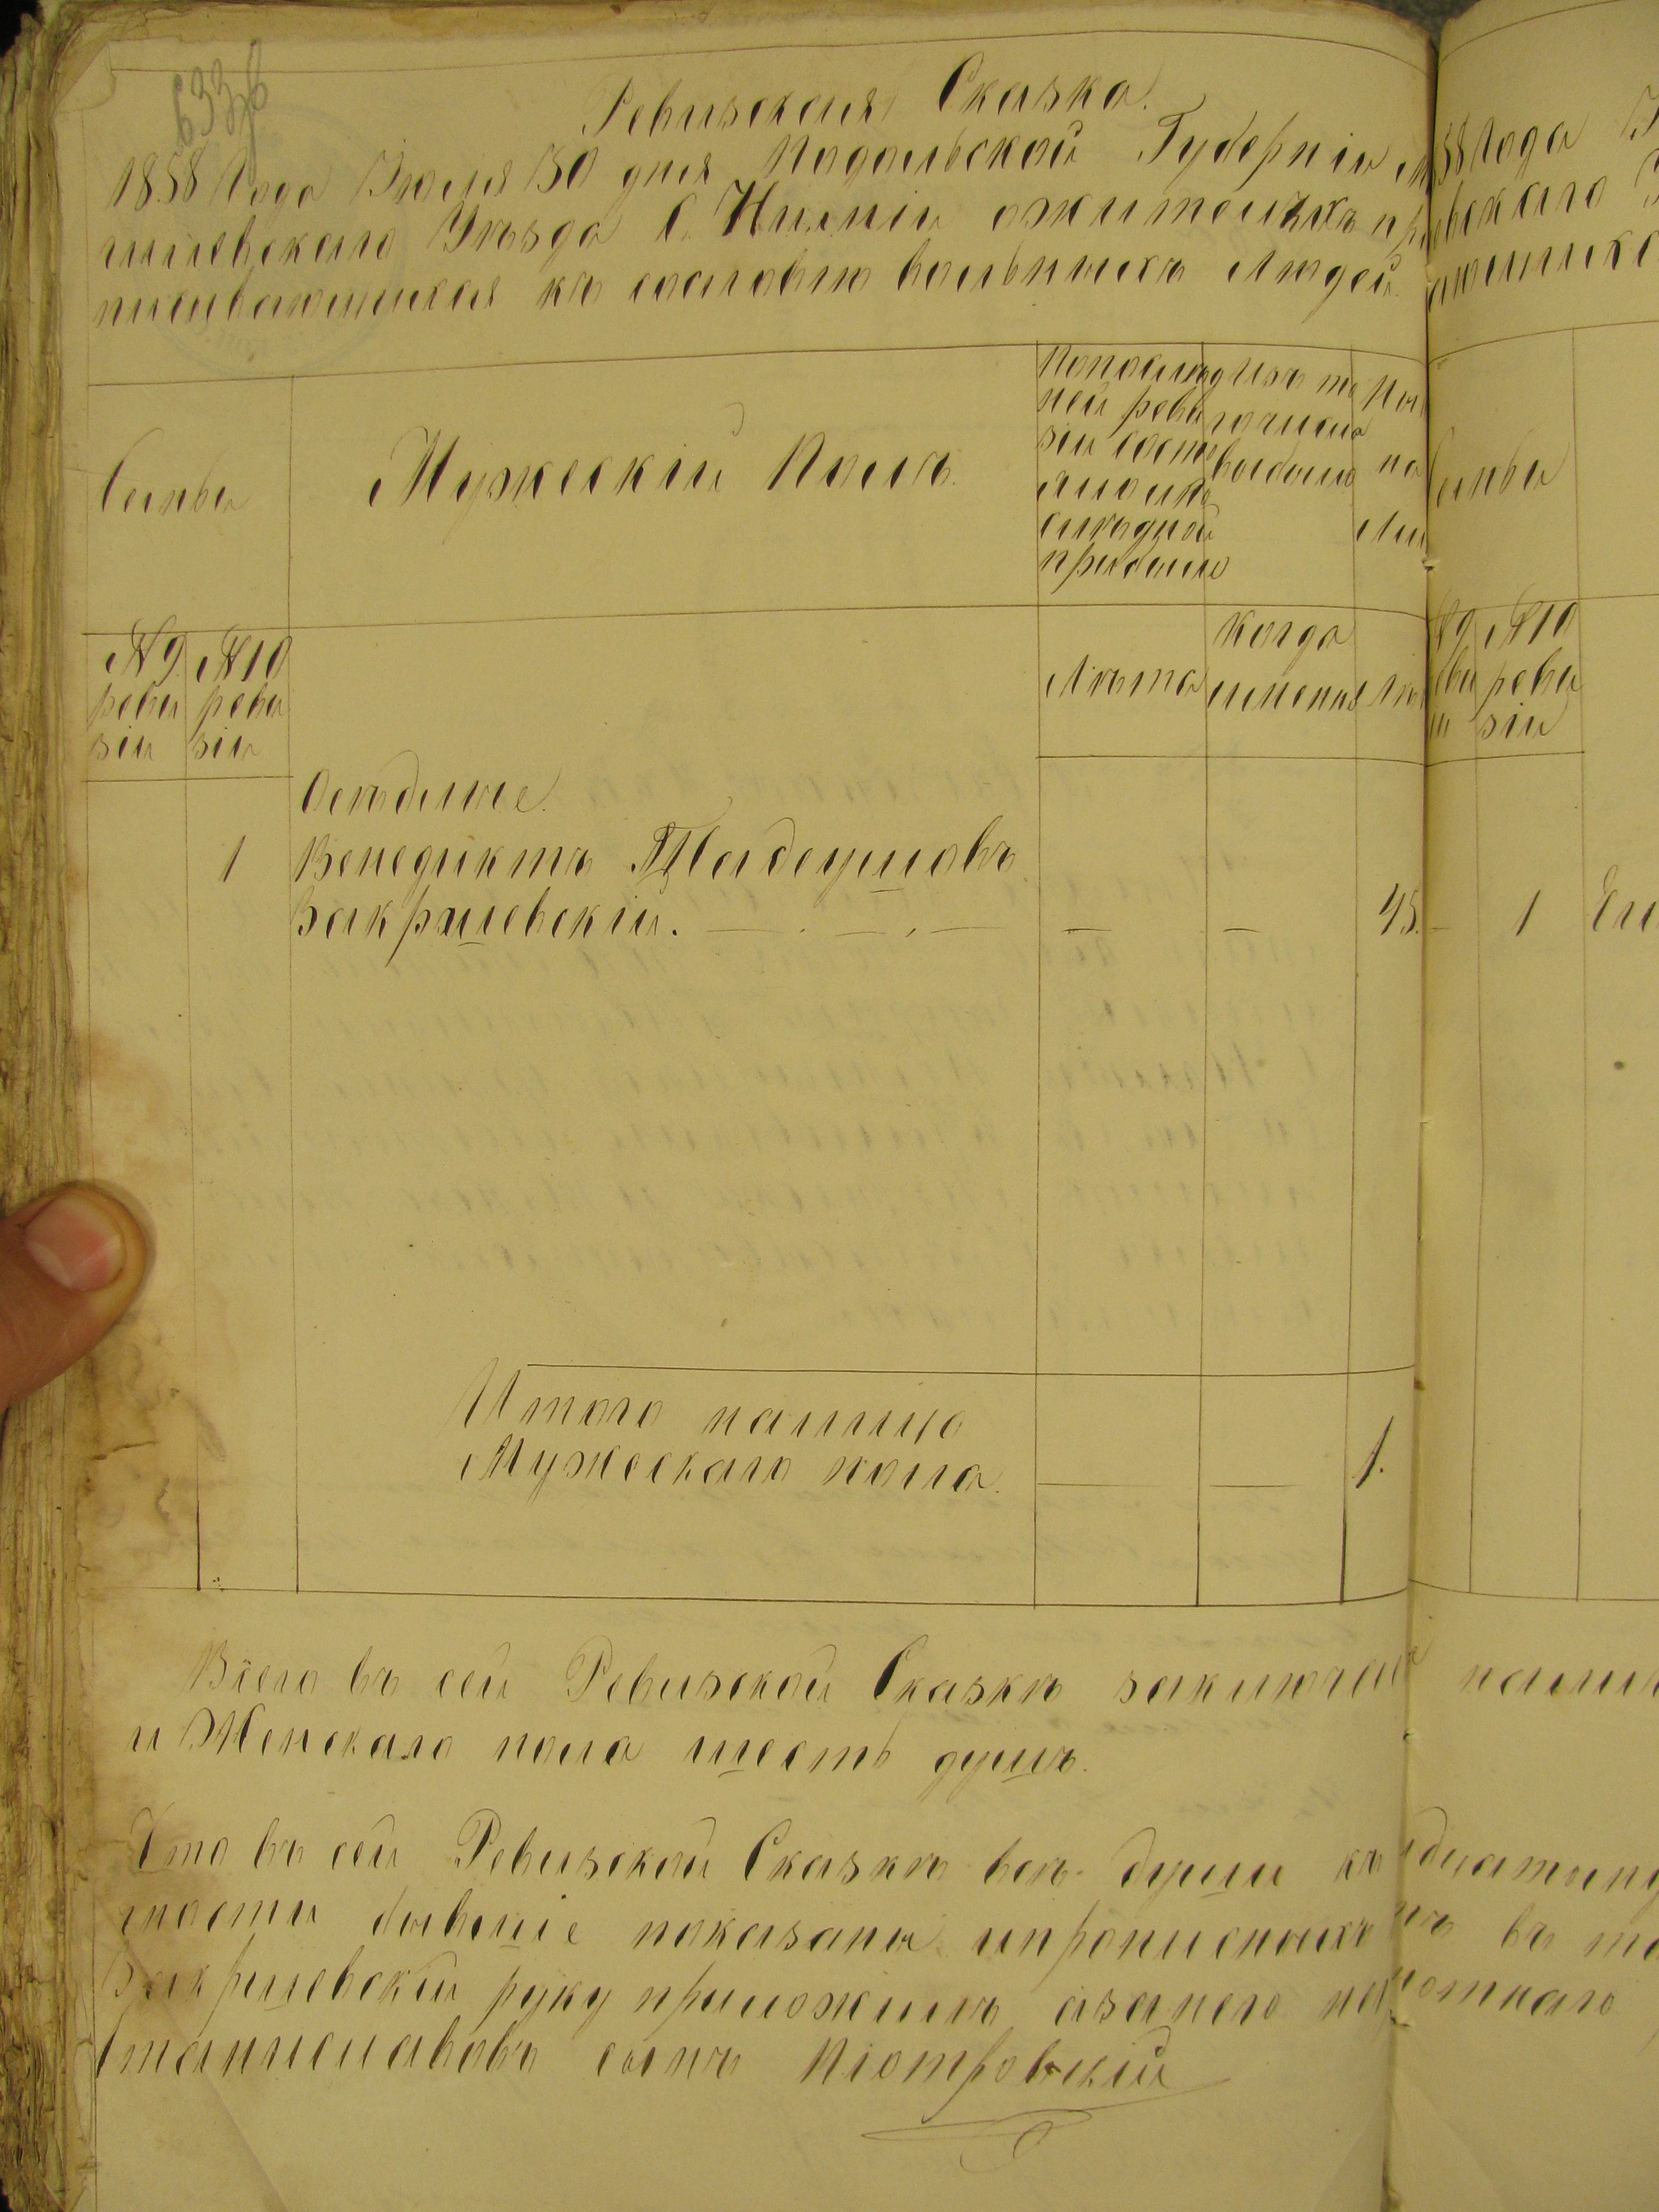 633об
Ревизская Сказка.
1858 Года Июля 30 дня Подольской Губерніи М
гилевскаго Уѣзда С. о жителяхъ при
писывающихся къ сословію вольныхъ Людей.
Семьи
Мужескій Полъ.
По послѣд
ней реви
зіи состо
яло и по
слѣдной
прибыло
Изъ то
го числа
выбыло
Ны
на
Ли
№9.
реви
зіи
№10
реви
зіи
Лѣта
когда
именно
Лѣ
Осѣдлые.
1 Венедиктъ Тадеушовъ
Закршевскій. — . — . — — — 45.
Итого налицо
Мужескаго пола. — — 1.
Всего въ сей Ревизской Сказкѣ заключае
и Женскаго пола шесть душъ.
Что въ сей Ревизской Сказкѣ всѣ души къ
ности бывшіе показаны и прописныхъ
Закршевскій руку приложилъ а за него не
Станиславовъ сынъ Піотровскій
58 Года И
вскаго У
ающихс
Семьи
№9
еви
іи
№10
реви
зіи
— 1 Ел
нали
въ то
мотнаго